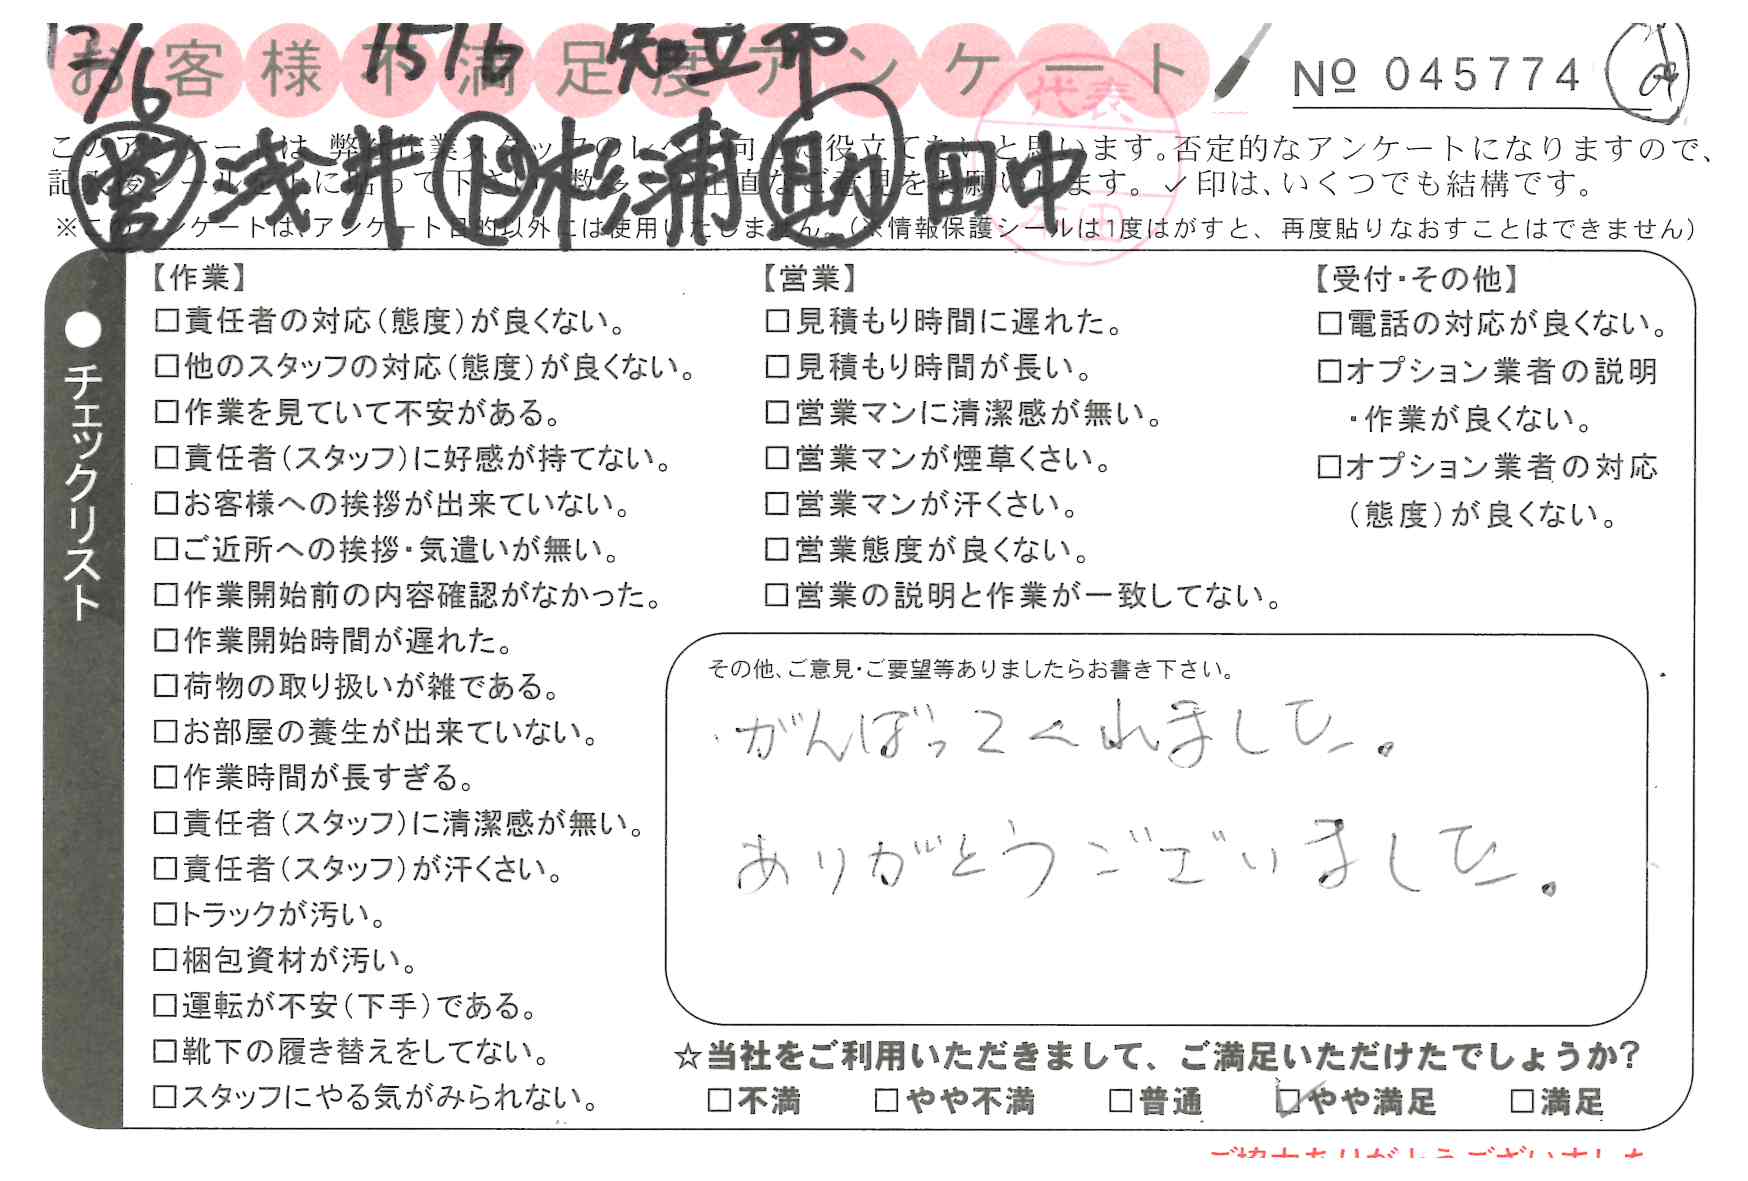 12/6 1516 知立市
お客様不満足度アンケート
№ 045774
営 浅井 ド 杉浦 助 田中
代表
このアンケートは、弊社作業スタッフのレベル向上に役立てたいと思います。否定的なアンケートになりますので、
記入後シールを上に貼って下さい。数多くの正直なご意見をお願いします。✓印は、いくつでも結構です。
※このアンケートは、アンケート目的以外には使用いたしません。(※情報保護シールは1度はがすと、再度貼りなおすことはできません)
●チェックリスト
【作業】
□責任者の対応(態度)が良くない。
□他のスタッフの対応(態度)が良くない。
□作業を見ていて不安がある。
□責任者(スタッフ)に好感が持てない。
□お客様への挨拶が出来ていない。
□ご近所への挨拶・気遣いが無い。
□作業開始前の内容確認がなかった。
□作業開始時間が遅れた。
□荷物の取り扱いが雑である。
□お部屋の養生が出来ていない。
□作業時間が長すぎる。
□責任者(スタッフ)に清潔感が無い。
□責任者(スタッフ)が汗くさい。
□トラックが汚い。
□梱包資材が汚い。
□運転が不安(下手)である。
□靴下の履き替えをしてない。
□スタッフにやる気がみられない。
【営業】
□見積もり時間に遅れた。
□見積もり時間が長い。
□営業マンに清潔感が無い。
□営業マンが煙草くさい。
□営業マンが汗くさい。
□営業態度が良くない。
□営業の説明と作業が一致してない。
【受付・その他】
□電話の対応が良くない。
□オプション業者の説明
・作業が良くない。
□オプション業者の対応
(態度)が良くない。
その他、ご意見・ご要望等ありましたらお書き下さい。
がんばってくれました。
ありがとうございました。
☆当社をご利用いただきまして、ご満足いただけたでしょうか?
□不満 □やや不満 □普通 ☑やや満足 □満足
ご協力ありがとうございました